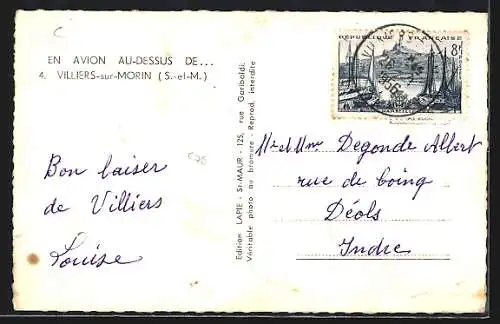 EN AVION AU-DESSUS DE...
4. VILLIERS-sur-MORIN (S.-et-M.)
Bon baiser
de Villiers
Louise
Edition LAPIE - St-MAUR - 125, rue Garibaldi.
Véritable photo au bromure - Reprod. interdite
REPUBLIQUE FRANÇAISE
8F
1956
Mr et Mme Degonde Albert
rue de boing
Déols
Indre